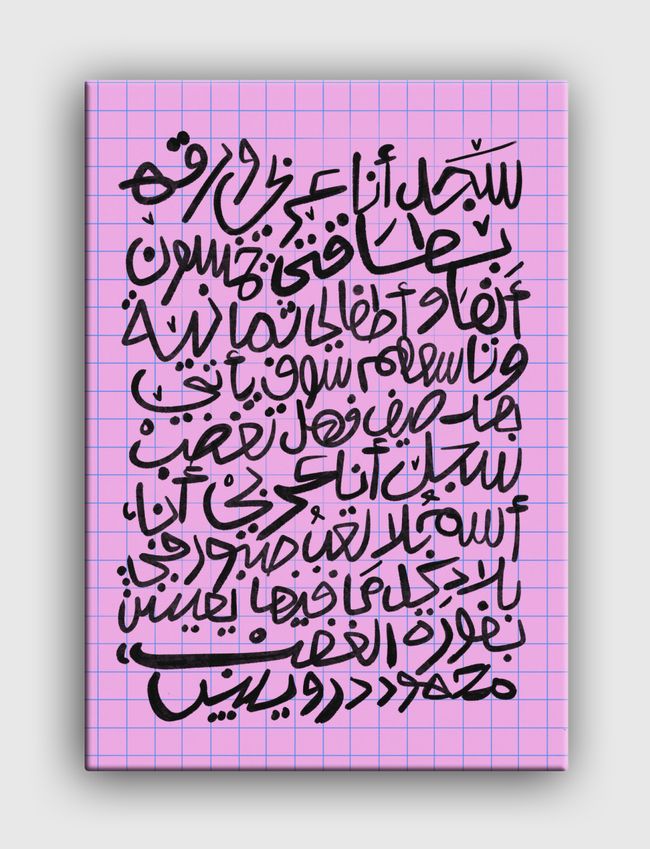 سَجِّل أنا عَربي ورقم
بطاقتي خمسون
ألف وأطفالي ثمانية
وتاسعهم سوف يأتي
بعد صيف فهل تغضب
سجل أنا عربي أنا
أسم بلا لقب صبور في
بلاد كل ما فيها يعيش
بفورة الغضب
محمود درويش